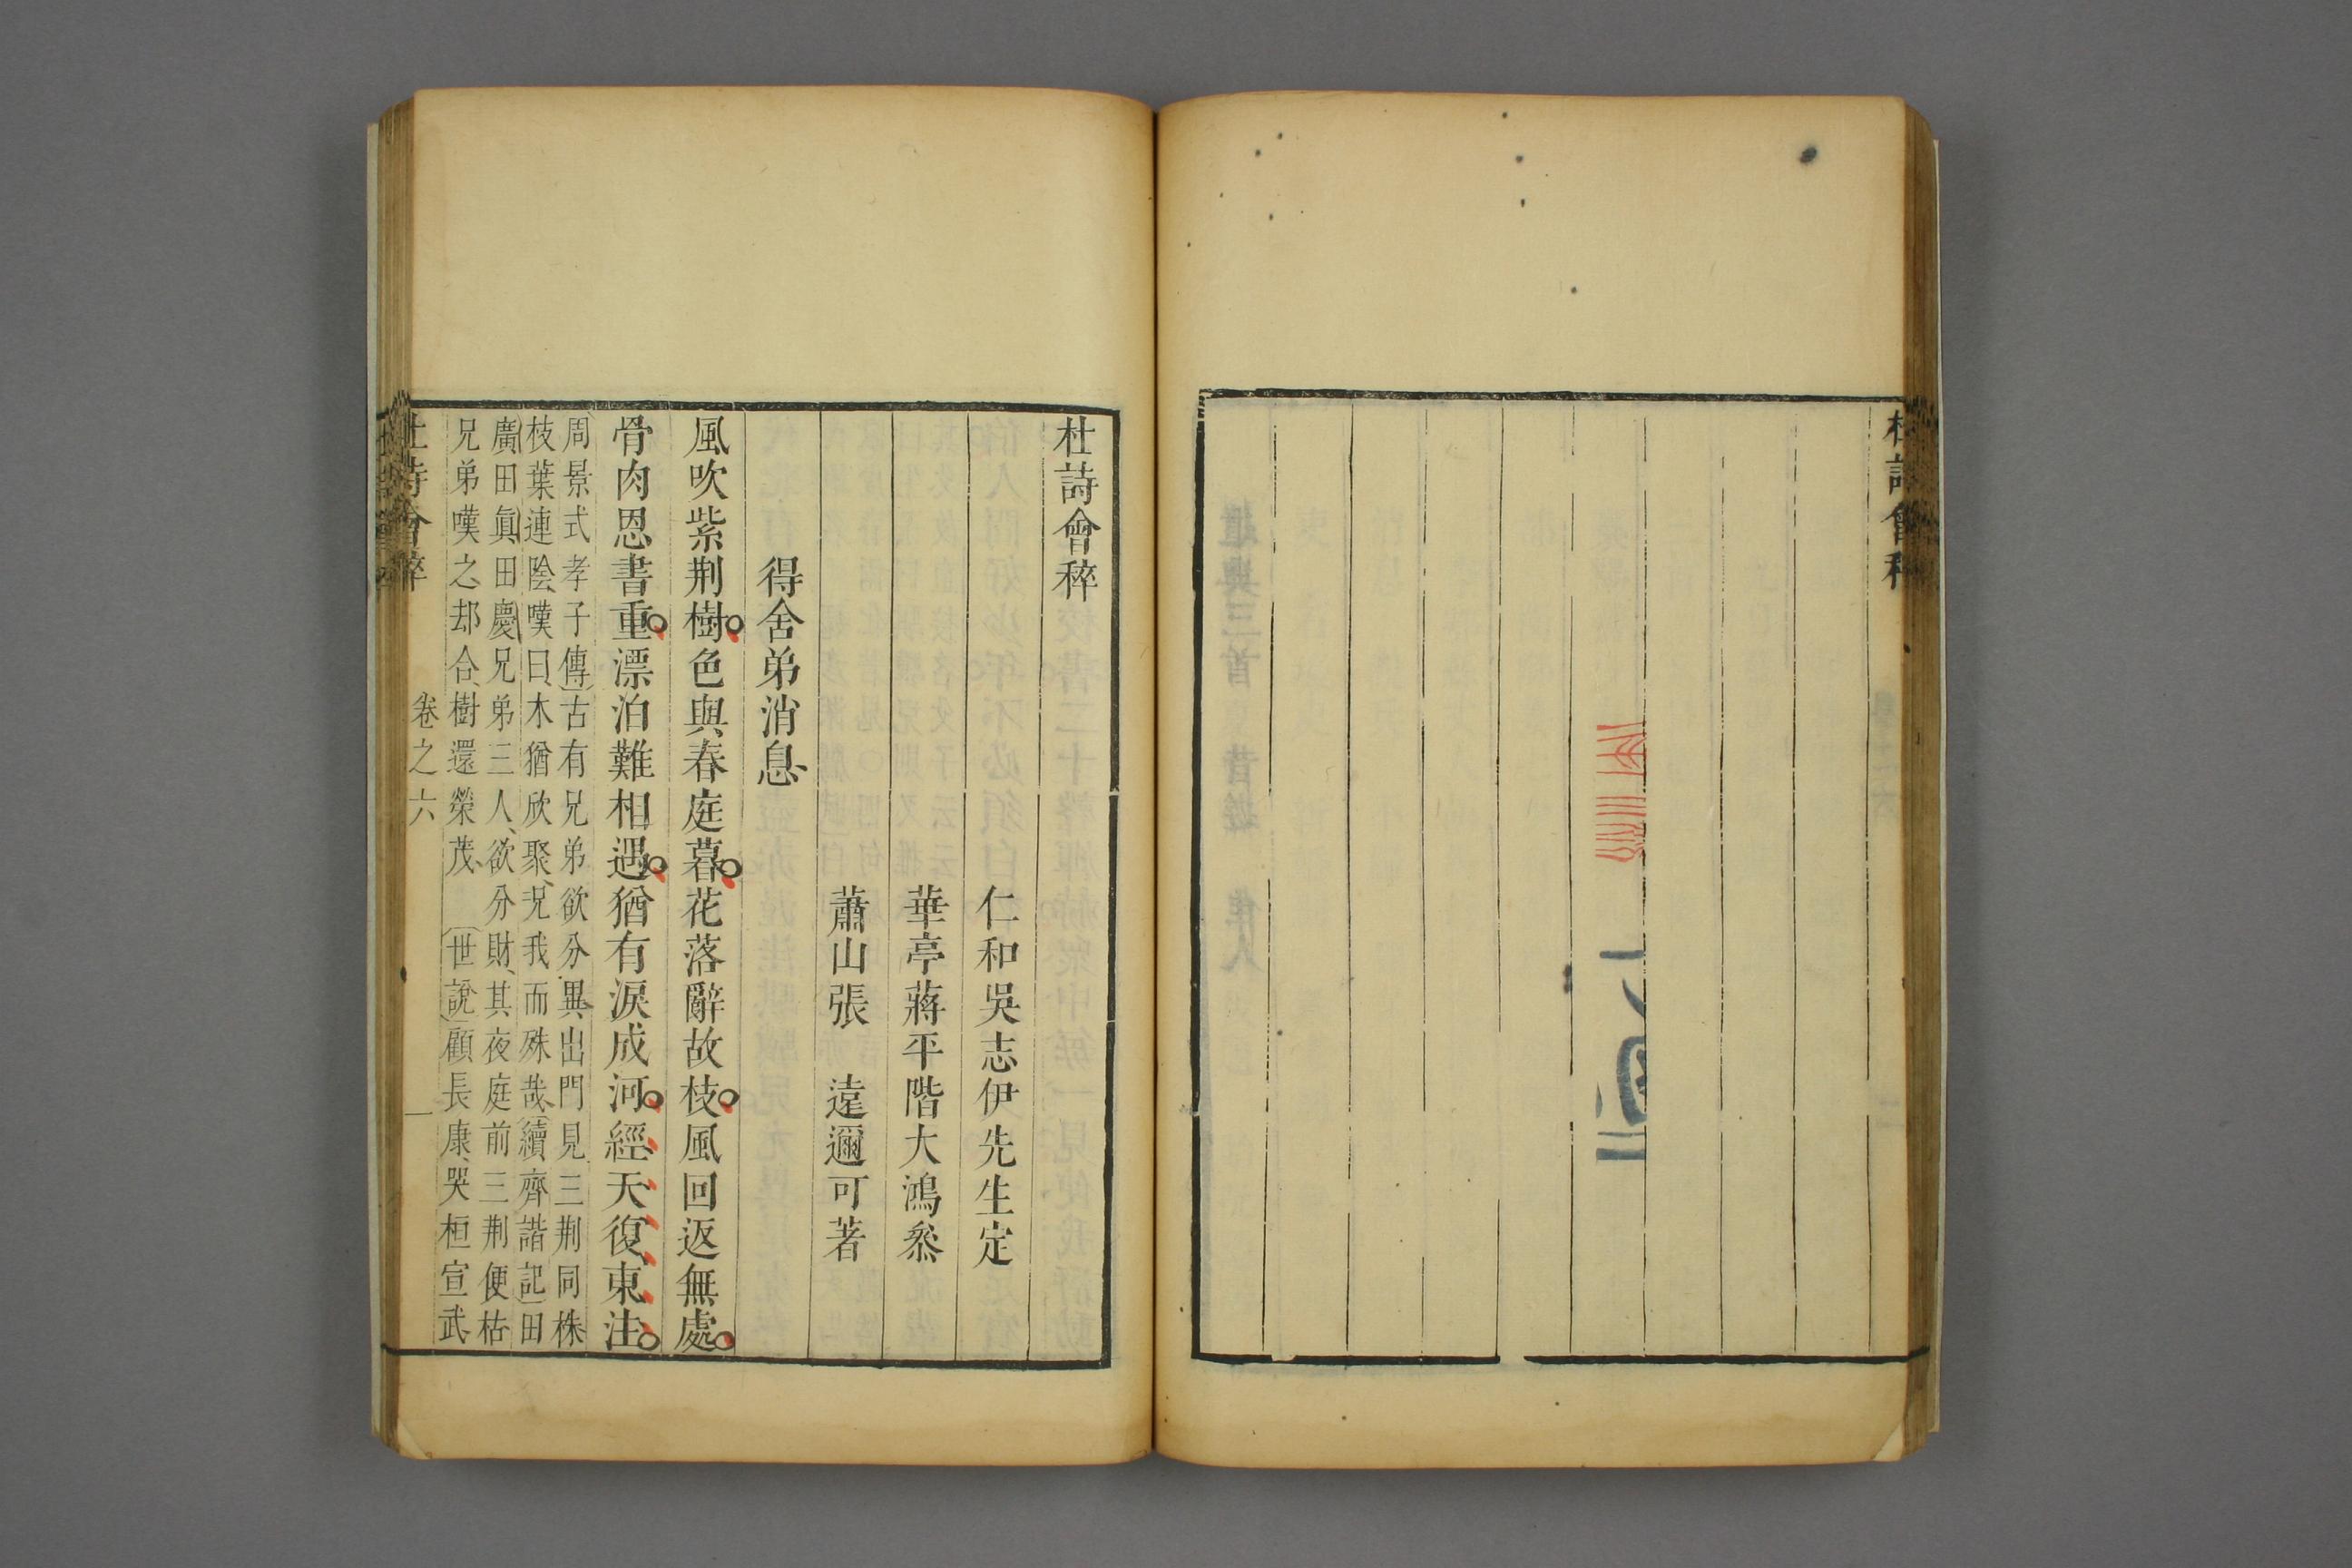 杜詩會稡
杜詩會稡
仁和吳志伊先生定
華亭蔣平階大鴻叅
蕭山張　遠邇可著
得舍弟消息
風吹紫荆樹色與春庭暮花落辭故枝風回返無處
骨肉恩書重漂泊難相遇猶有淚成河經天復東注
周景式孝子傳古有兄弟欲分異出門見三荆同株
枝葉連陰嘆曰木猶欣聚況我而殊哉續齊諧記田
廣田眞田慶兄弟三人欲分財其夜庭前三荆便枯
兄弟嘆之却合樹還榮茂　世說顧長康哭桓宣武
杜詩會稡　卷之六　一